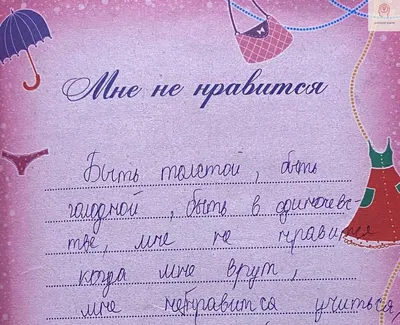 Мне не нравится
Быть толстой, быть
голодной, быть в одиночес-
тве, мне не нравится
когда мне врут,
мне ненравится учиться,